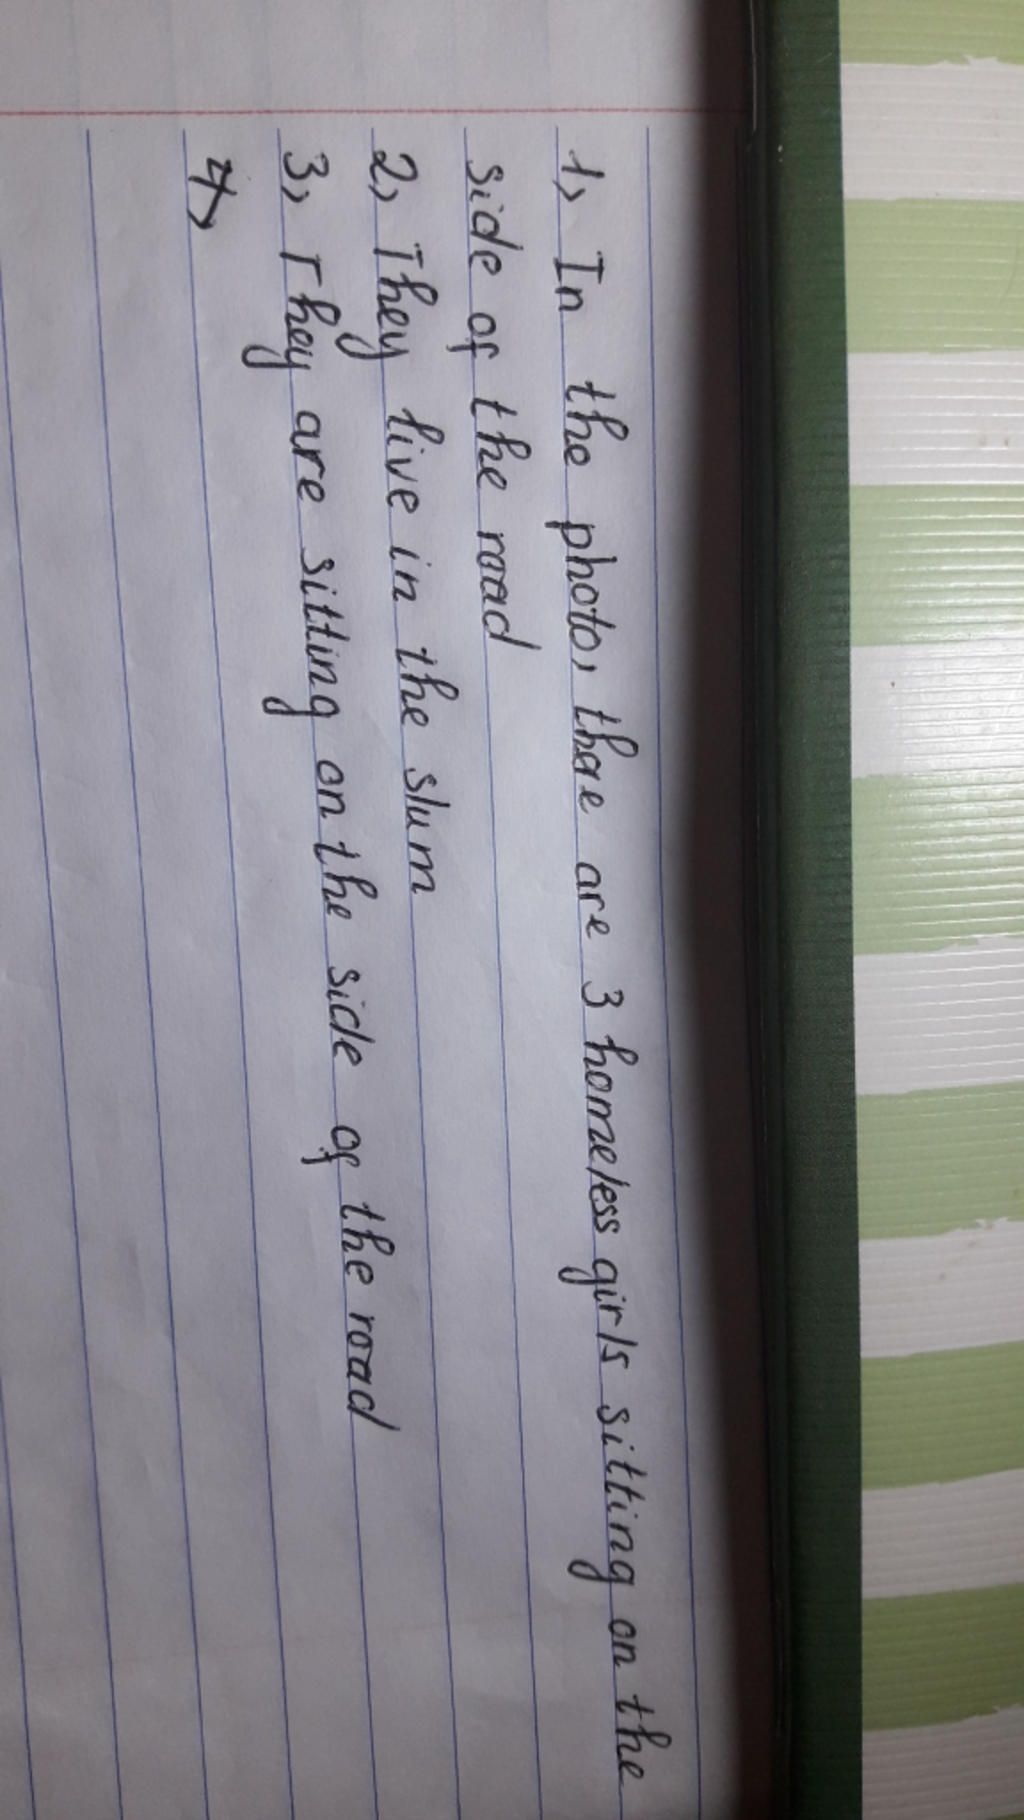 1, In the photo, thae are 3 homeless girls sitting on the
side of the road
2, They live in the slum
3, They are sitting on the side of the road
4,